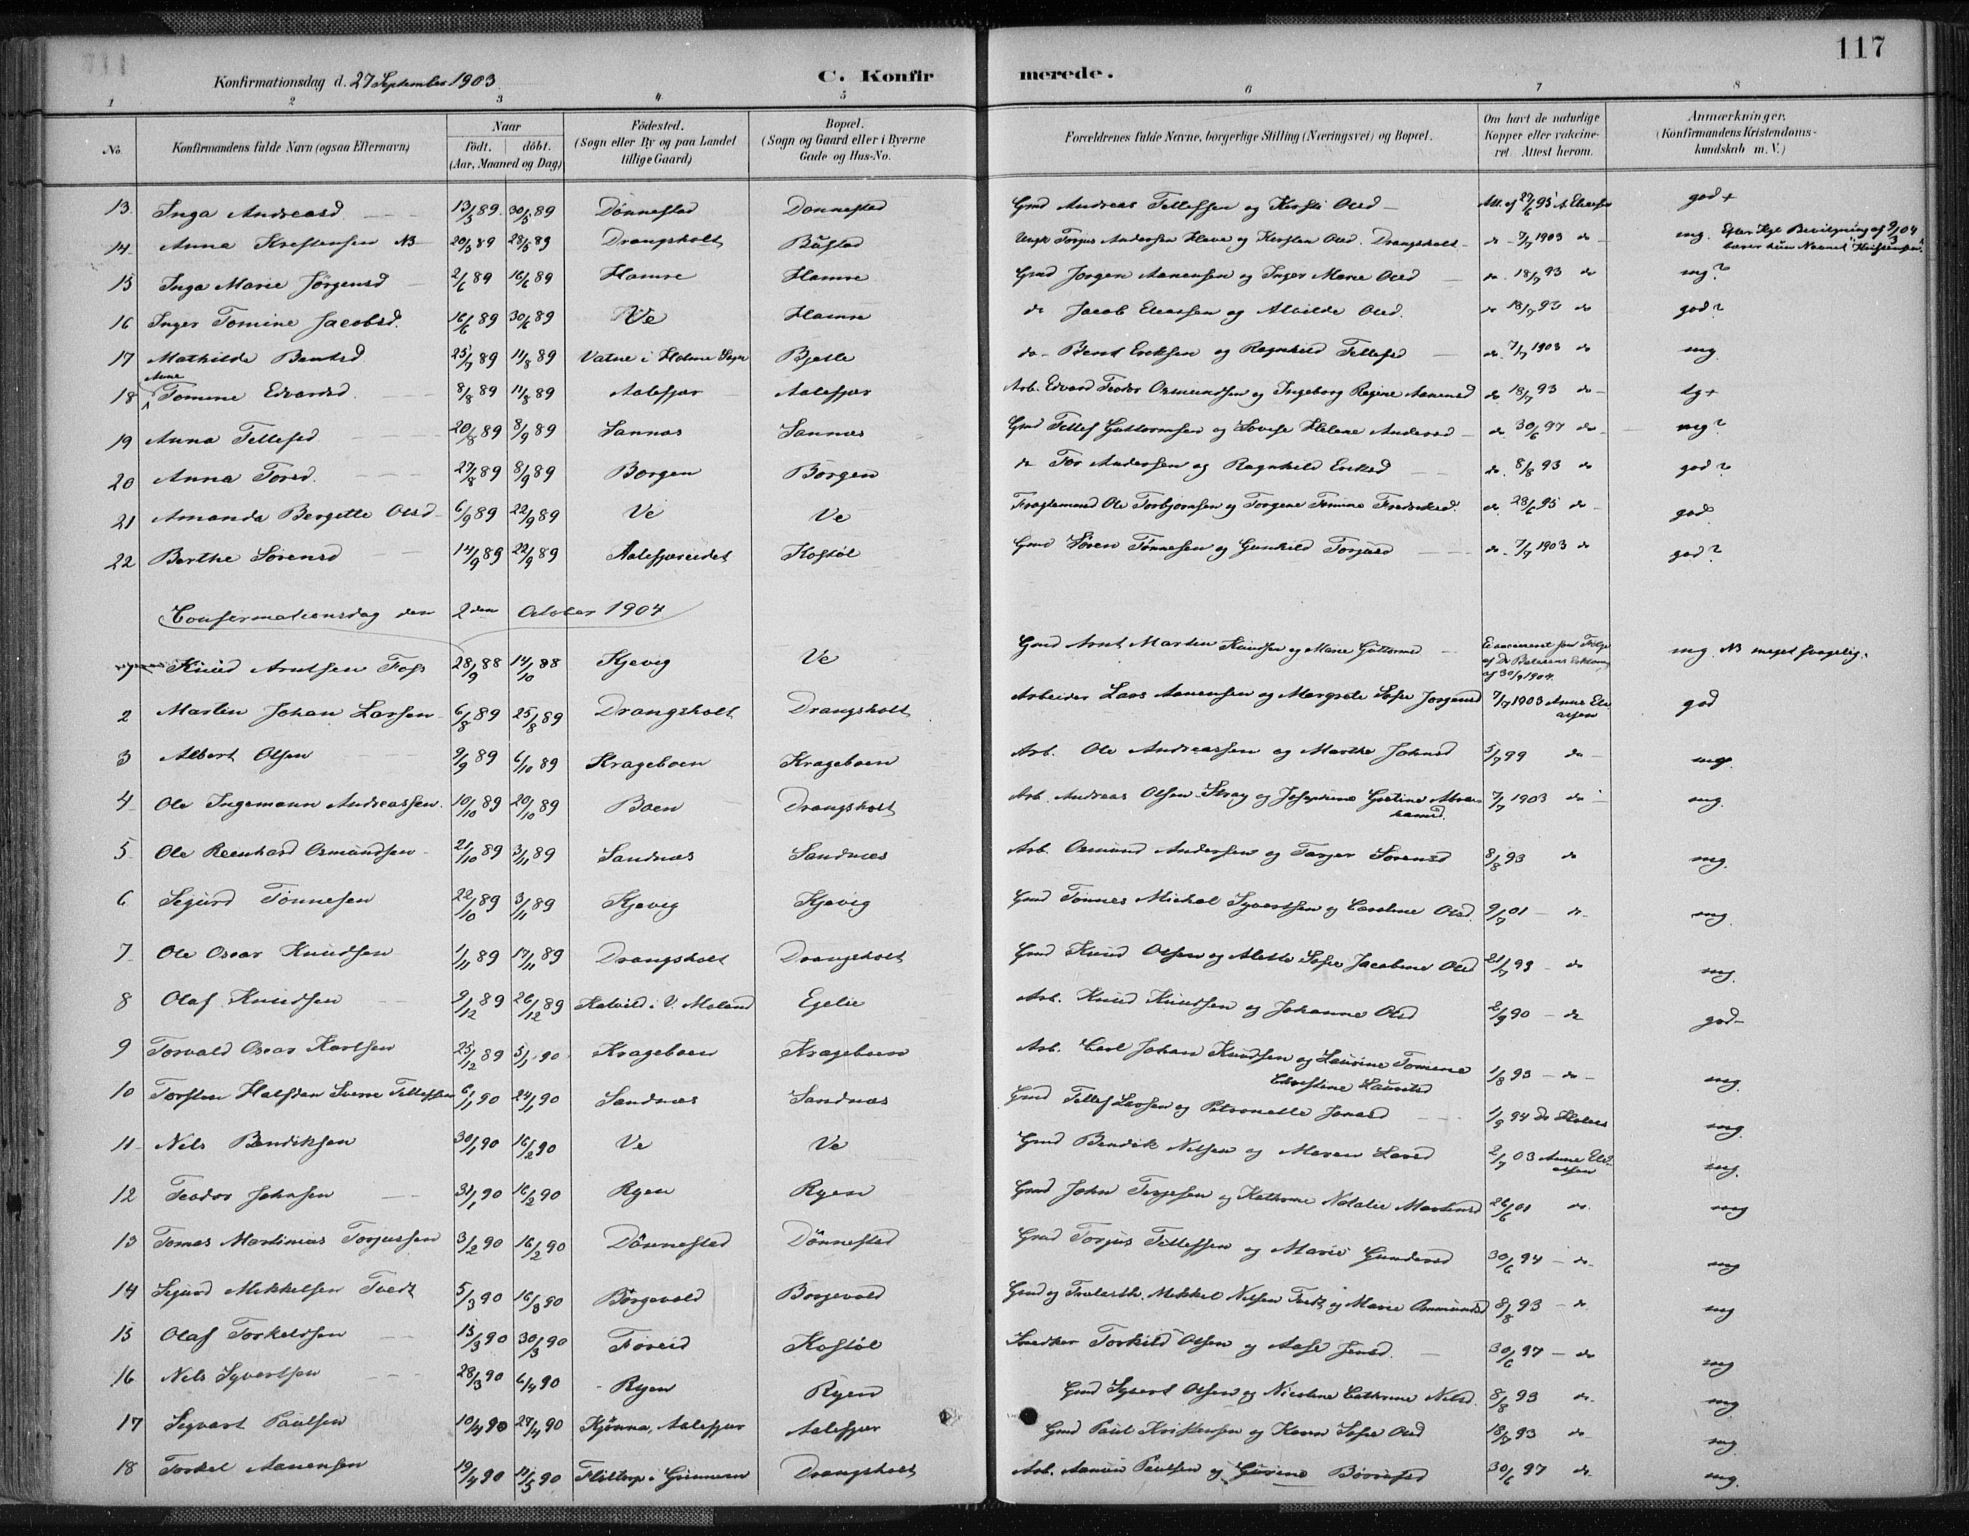 117
Konfirmationsdag d. 27 September 1903. C. Konfirmerede.
1 2 3 4 5 6 7 8
No. Konfirmandens fulde Navn (ogsaa Efternavn) Naar født. døbt. (Aar, Maaned og Dag) Fødested. (Sogn eller By og paa Landet tillige Gaard) Bopæl. (Sogn og Gaard eller i Byerne Gade og Hus-No. Forældrenes fulde Navne, borgerlige Stilling (Næringsvei) og Bopæl. Om havt de naturlige Kopper eller vakcineret. Attest herom. Anmærkninger. (Konfirmandens Kristendomskundskab m. V.)
13. Inga Andreasd. 13/5 89 30/5 89 Dønnestad Dønnestad Gmd Andreas Tellefsen og Kirsti Olsd god +
14 Anna Kristensen NB 20/3 89 28/5 89 Drangsholt Bustad Torjus Andersen og Kirsten Olsd. Drangsholt do 7/7 1903 do mg. Efter Kgl Bevilgning af 9/3 04 bærer hun Navnet "Kristensen".
15 Inga Marie Jørgensd 2/6 89 16/6 89 Hamre Hamre Gmd Jørgen Aanensen og Inger Marie Olsd do 18/7 93 do mg?
16 Inger Tomine Jacobsd. 16/6 89 30/6 89 Ve Hamre do Jacob Eliassen og Alvilde Olsd. do 18/7 93 do god?
17 Mathilde Bentsd 25/7 89 11/8 89 Vatne i Holme Sogn Bjelle do Bent Eriksen og Ragnhild Tellefsd do 7/7 1903 do mg
18 Anne Tomine Edvardsd. 8/8 89 11/8 89 Aalefjær Aalefjær Arb. Edvard Teodor Osmundsen og Ingeborg Regine Aanensd do 18/7 93 do tg+
19 Anna Tellefsd 20/8 89 8/9 89 Sannæs Sannæs Gmd Tellef Guttormsen og Lovise Helene Andersd do 30/6 97 do mg?
20 Anna Torsd. 27/8 89 8/9 89 Borgen Borgen do Tor Andersen og Ragnhild Eriksd do 8/8 93 do god?
21 Amanda Bergette Olsd 6/9 89 22/9 89 Ve Ve Fragtemand Ole Torbjørnsen og Torgine Tomine Fredriksd. do 28/6 95 do god
22 Berthe Sørensd 14/9 89 22/9 89 Aalefjæreidet Kostøl Gmd Søren Tønnesen og Gunhild Torjusd do 7/7 1903 do god?
Confirmationsdag den 2den October 1904
Knud Arntsen Foss 28/9 88 14/10 88 Kjevig Ve Gmd Arnt Martin Knudsen og Marie Guttormsd Ei vaccineret som Følge af Dr Erklæring af 30/9 1904. mg. NB meget svagelig.
2 Martin Johan Larsen 6/8 89 25/8 89 Drangsholt Drangsholt Arbeider Lars Aanensen og Margrete Sofie Jørgensd 7/7 1903 Anne Eliassen god
3 Albert Olsen 9/9 89 6/10 89 Krageboen Krageboen Arb. Ole Andreassen og Marthe Johnsd 5/7 99 do mg.
4 Ole Ingemann Andreassen. 10/10 89 20/10 89 Boen Drangsholt Arb. Andreas Olsen Stray og Josephine Gustine Abrahamsd. 7/7 1903 do mg.
5 Ole Reinhard Osmundsen 21/10 89 3/11 89 Sandnæs Sandnæs Arb. Osmund Andersen og Torjer Sørensd 8/8 93 do mg.
6 Sigurd Tønnesen 22/10 89 3/11 89 Kjevig Kjevig Gmd Tønnes Michal Syvertsen og Caroline Olsd. 9/7 01 do mg.
7 Ole Oscar Knudsen 1/11 89 17/11 89 Drangsholt Drangsholt Gmd Knud Olsen og Alette Sofie Jacobine Olsd 21/7 93 do mg.
8 Olaf Knudsen 9/12 89 26/12 89 i V. Moland Egelie Arb. Knud Knudsen og Johanne Olsd 2/9 90 do god
9 Torvald Oscar Karlsen 25/12 89 5/1 90 Krageboen Krageboen Arb. Carl Johan Knudsen og Laurine Tomine Christine Lauritsd 1/8 93 do mg.
10 Torsten Halfdan Sverre Tellefsen 6/1 90 24/1 90 Sandnæs Sandnæs Gmd Tellef Larsen og Petronelle Jonasd 1/9 94 do mg.
11 Nils Bendiksen 30/1 90 16/2 90 Ve Ve Gmd Bendik Nilsen og Maren Larsd 2/7 03 Anne Eliassen mg.
12 Teodor Johnsen 31/1 90 16/2 90 Ryen Ryen Gmd John Terjesen og Kathrine Natalie Martinsd 26/6 01 do. mg
13 Tomas Martinius Torjussen 3/2 90 16/2 90 Dønnestad Dønnestad Gmd Torjus Tellefsen og Marie Gundersd 30/6 94 do mg
14 Sigurd Mikkelsen Tvedt 5/3 90 16/3 90 Borgevold Borgevold Gmd og Mikkel Nilsen Tvedt og Marie Osmundsd 8/8 93 do mg
15 Olaf Torkeldsen 15/3 90 30/3 90 Foreid Kostøl Snedker Torkild Olsen og Aase Jensd. 30/6 97 do mg
16 Nils Syvertsen 28/3 90 6/4 90 Ryen Ryen Gmd Syvert Olsen og Nicoline Cathrine Nilsd. 8/8 93 do mg.
17 Sigvart Paulsen 10/4 90 27/4 90 Kjønna, Aalefjær Aalefjær Gmd Paul Kristensen og Karen Sofie Olsd 18/7 93 do mg
18 Torkel Aanensen 19/4 90 11/5 90 Drangsholt Arb. Aanen Paulsen og 30/6 97 do mg.